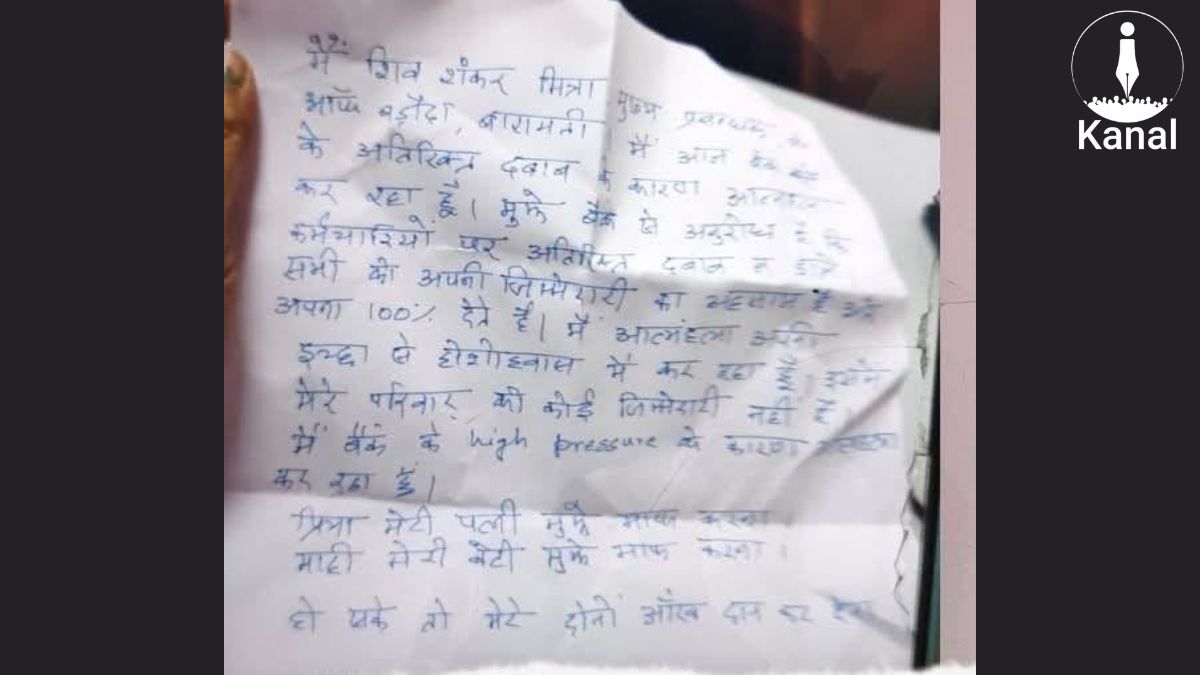 99.
मैं शिव शंकर मित्रा मुख्य प्रबन्धक
ऑफ बड़ौदा, बारामती मैं आज बैंक
के अतिरिक्त दबाब के कारण
कर रहा हूँ। मुझे बैंक से अनुरोध है कि
कर्मचारियों पर अतिरिक्त दबाब न डाले
सभी को अपनी जिम्मेदारी का अहसास है
अपना 100% देते है। मैं आत्महत्या अपनी
इच्छा से होशोहवास में कर रहा हूँ। इसमें
मेरे परिवार की कोई जिम्मेदारी नहीं है
मैं बैंक के high pressure के कारण
कर रहा हूँ।
प्रिया मेरी पत्नी मुझे माफ करना।
माही मेरी बेटी मुझे माफ करना।
हो सके तो मेरे दोनों आँख दान कर देना
Kanal